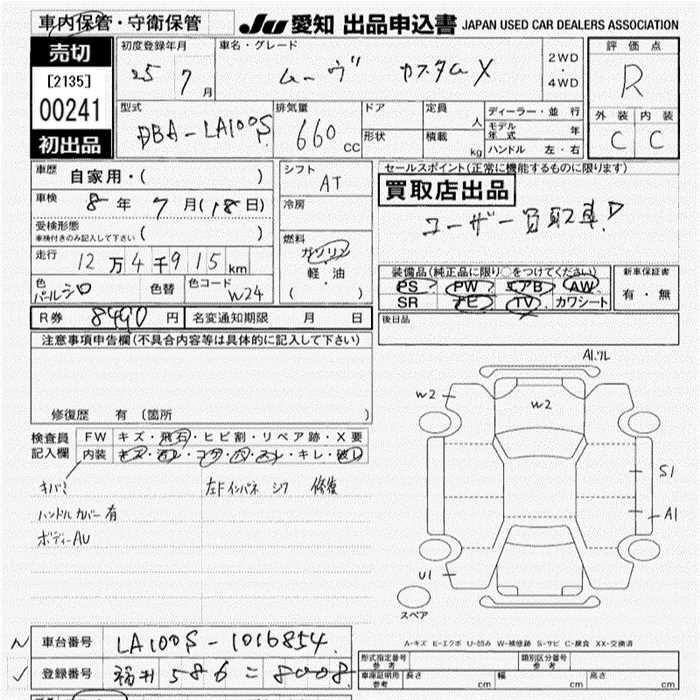 車内保管・守衛保管
JU 愛知 出品申込書 JAPAN USED CAR DEALERS ASSOCIATION
売切
[2135]
00241
初出品
初度登録年月
25 7 月
車名・グレード
ムーヴ カスタム X
2WD
・
4WD
評価点
R
外装 内装
C C
型式
DBA-LA100S
排気量
660 cc
ドア
形状
定員 人
積載 kg
ディーラー・並行
モデル年式 年
ハンドル 左・右
車歴 自家用・( )
車検 8 年 7 月(18日)
受検形態
車検付きのみ記入して下さい ( )
走行 12万4千915km
色 パールシロ
色替
色コード W24
シフト
AT
冷房
燃料
ガソリン
軽・油
( )
セールスポイント(正常に機能するものに限ります)
買取店出品
ユーザー買取車!
装備品(純正品に限り○をつけてください)
PS PW エアB AW
SR ナビ TV カワシート
新車保証書
有・無
R券 8490 円 名変通知期限 月 日
後日品
注意事項申告欄(不具合内容等は具体的に記入して下さい)
修復歴 有 (箇所 )
検査員
記入欄
FW キズ・飛石・ヒビ割・リペア跡・X要
内装 キズ・汚レ・コゲ・穴・スレ・キレ・破レ
キバミ
ハンドルカバー有
ボディーAU
左Fインパネ シワ 修復
AI.ツレ
W2
W2
S1
A1
U1
スペア
A-キズ E-エクボ U-凹み W-補修跡 S-サビ C-腐食 XX-交換済
車台番号 LA100S-1016854
登録番号 福井 586 = 8008
型式指定番号 参考
類別区分番号 参考
車庫証明用 参考 長さ cm 幅 cm 高さ cm